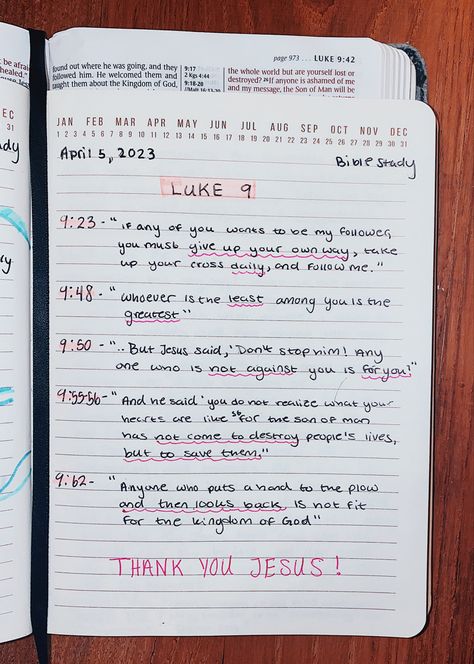 page 973 ... LUKE 9:42
found out where he was going, and they
followed him. He welcomed them and
taught them about the Kingdom of God,
9:17
2 Kgs 4:44
9:18-20
//Matt 16:13-20
the whole world but are yourself lost or
destroyed? 26 If anyone is ashamed of me
and my message, the Son of Man will be
JAN FEB MAR APR MAY JUN JUL AUG SEP OCT NOV DEC
1 2 3 4 5 6 7 8 9 10 11 12 13 14 15 16 17 18 19 20 21 22 23 24 25 26 27 28 29 30 31
April 5, 2023
Bible Study
LUKE 9
9:23 - "If any of you wants to be my follower,
you must give up your own way, take
up your cross daily, and follow me."
9:48 - "whoever is the least among you is the
greatest"
9:50 - "..But Jesus said, 'Don't stop him! Any
one who is not against you is for you!"
9:55-56 - "And he said 'you do not realize what your
hearts are like 56 for the son of man
has not come to destroy people's lives,
but to save them."
9:62 - "Anyone who puts a hand to the plow
and then looks back is not fit
for the kingdom of God"
THANK YOU JESUS!